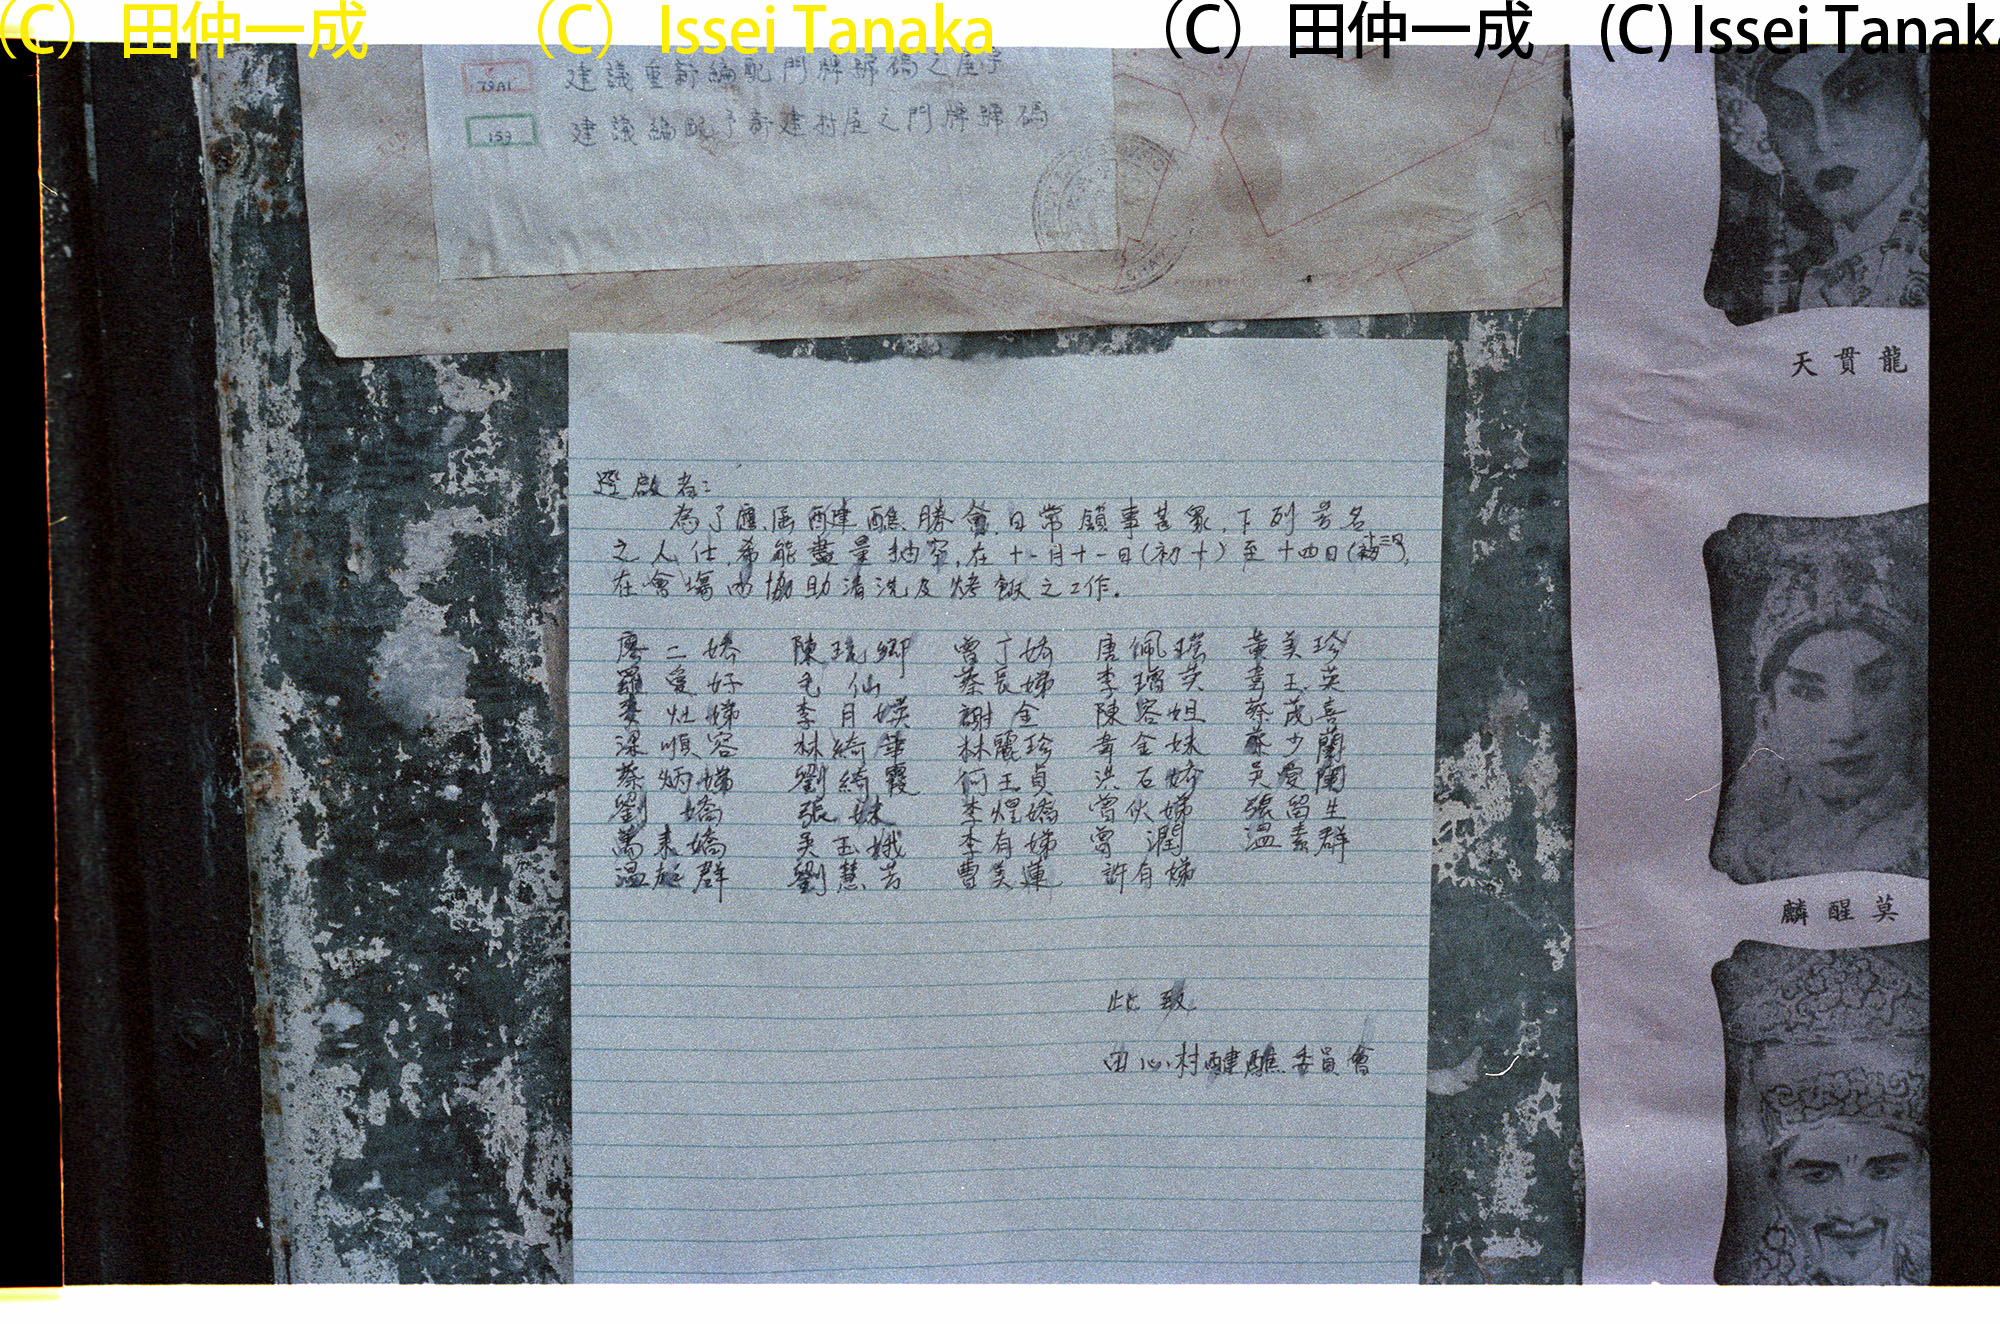 (C) 田仲一成 (C) Issei Tanaka (C) 田仲一成 (C) Issei Tanaka
79A1 建議重新編配門牌號碼之屋宇
153 建議編配予新建村屋之門牌號碼
逕啟者:
為了應屆酬建醮勝會,日常鎖事甚眾,下列芳名
之人仕,希能盡量抽空,在十一月十一日(初十)至十四日(十三日),
在會塲內協助清洗及烤飯之工作。
廖二嬌 陳琼卿 曾丁嬌 唐佩瓊 黃美珍
羅愛好 毛仙 蔡辰娣 李瓊英 韋玉英
麥灶娣 李月嫦 謝金 陳容妲 蔡茂喜
深順容 林綺華 林麗珍 韋金妹 蔡少蘭
蔡炳娣 劉綺霞 何玉貞 洪石嬌 吳愛蘭
劉嬌 張妹 李煜嬌 曾伙娣 張留生
萬素嬌 吳玉娥 李有娣 曾潤 溫素群
溫群 劉慧芳 曹美蓮 許有娣
此致
田心村酬建醮委員會
天貫龍
麟醒莫